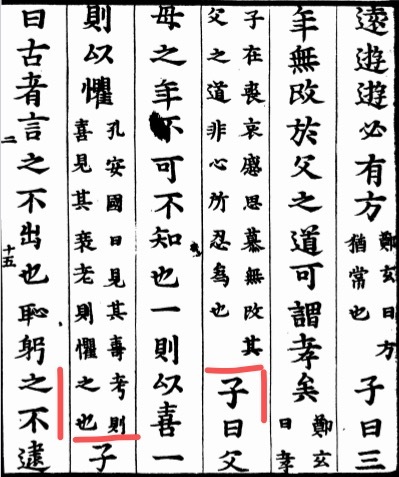 遠遊遊必有方鄭玄曰方猶常也子曰三
年無改於父之道可謂孝矣鄭玄曰孝
子在喪哀慼思慕無改其父之道非心所忍為也子曰父
母之年不可不知也一則以喜一
則以懼孔安國曰見其壽考則喜見其衰老則懼之也子
曰古者言之不出也恥躬之不逮
二 十五